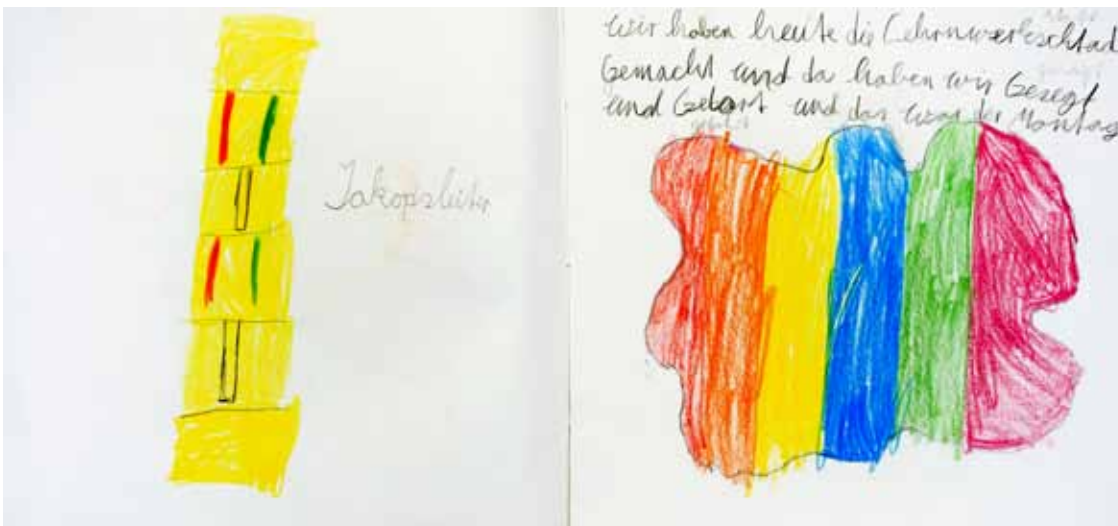 Jakopsleiter
wir haben heute die Lehrnwerkschtad
Gemacht und da haben wir Gesegt
und Gebort und das war der Montag